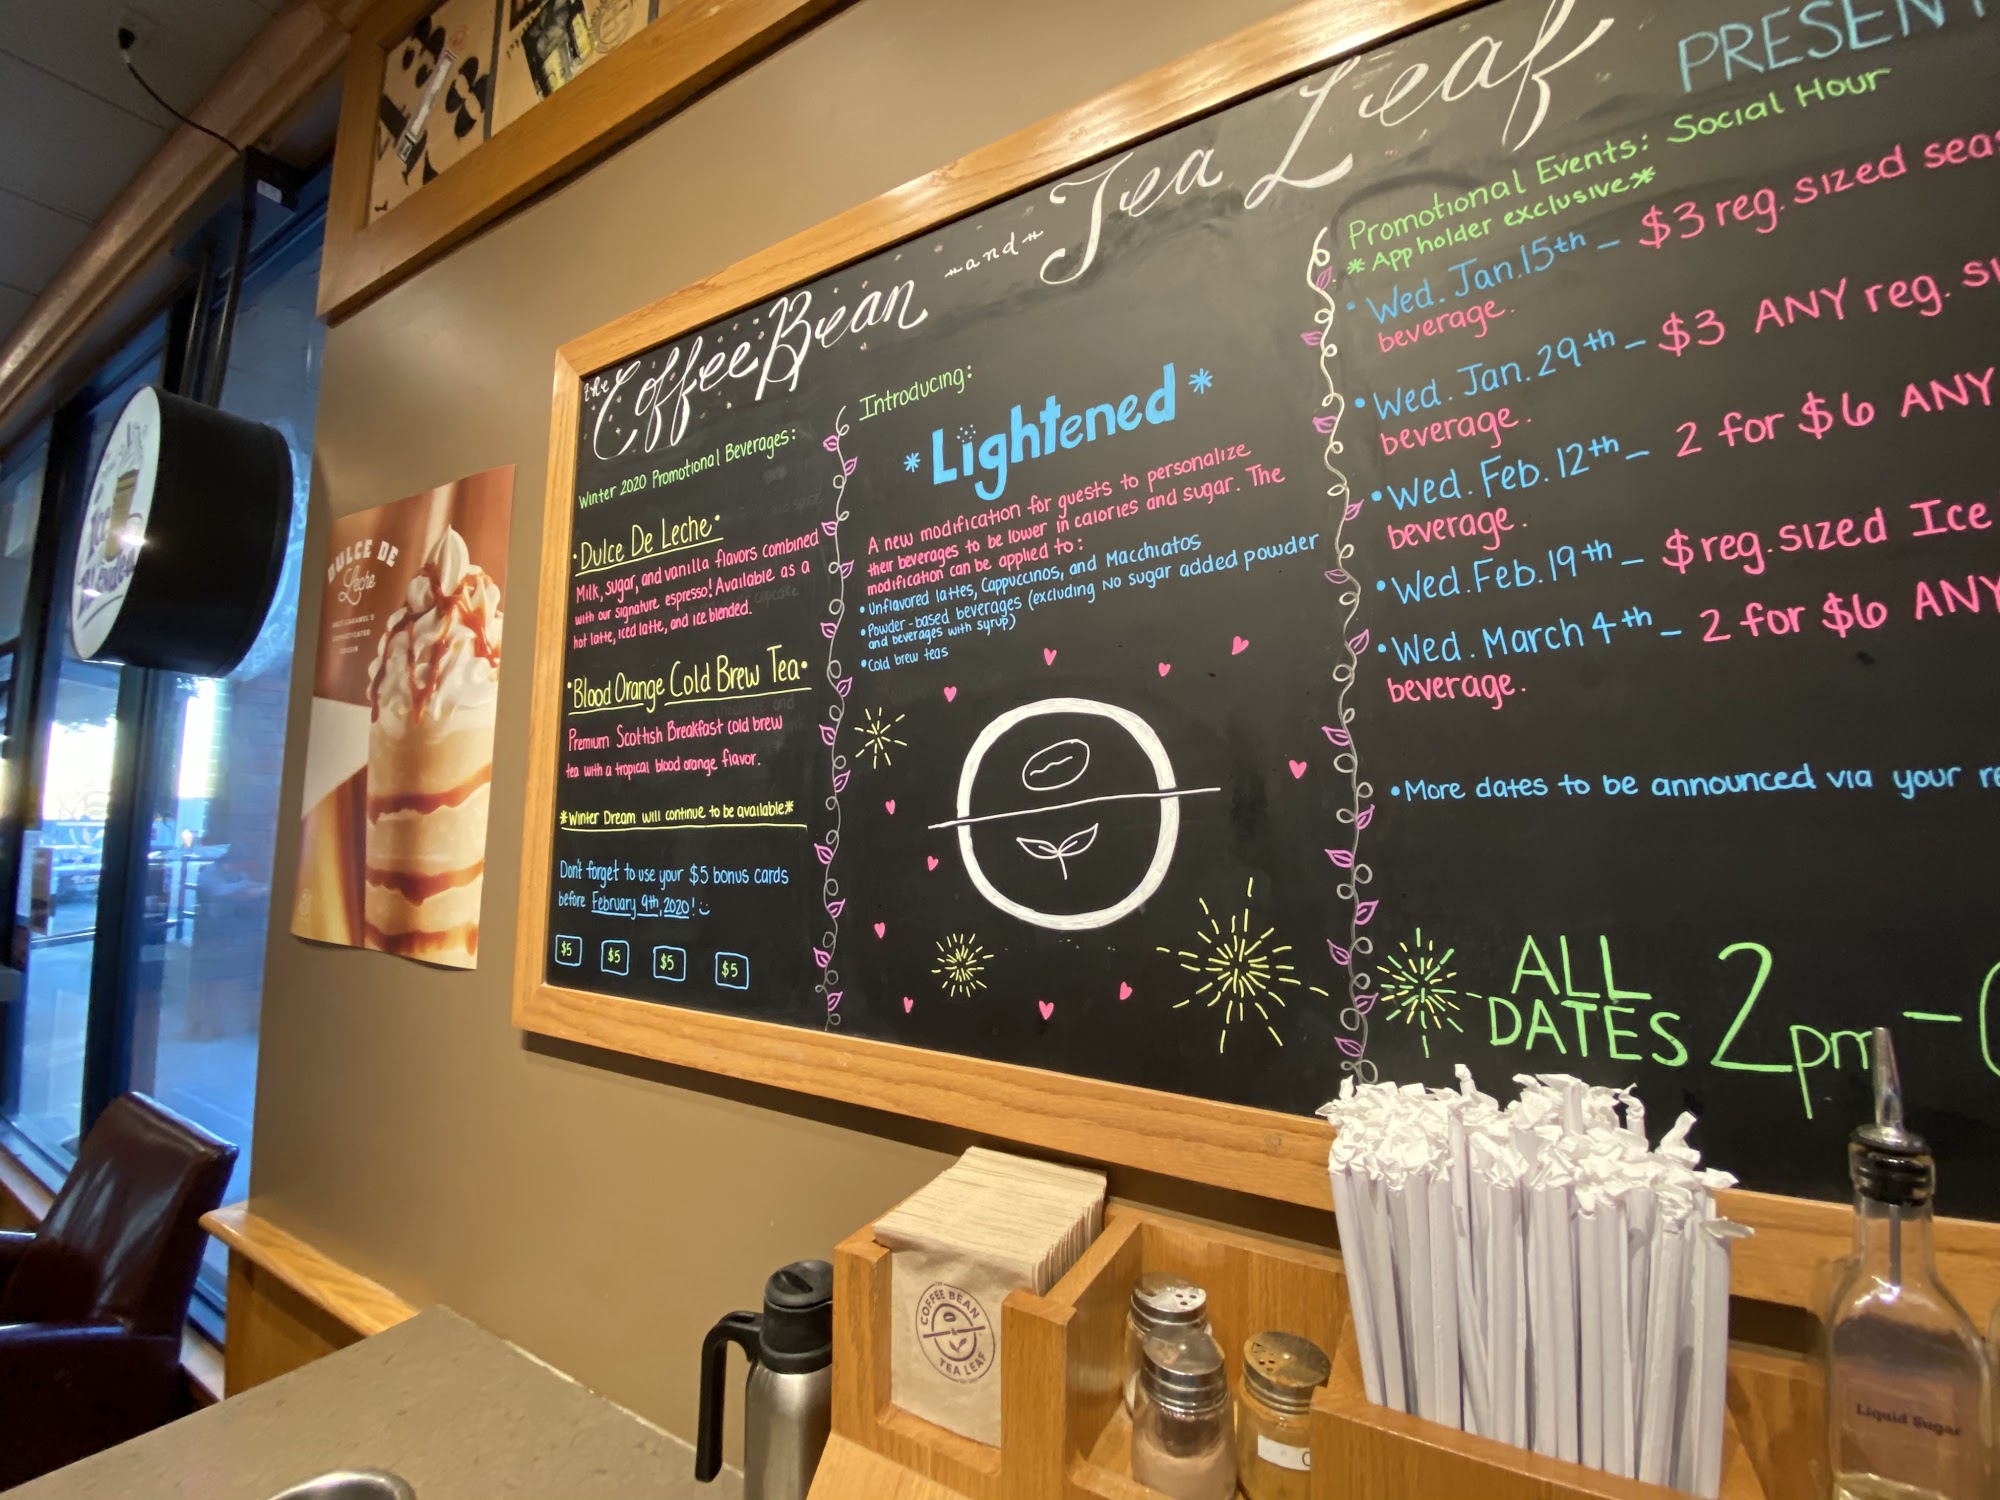 the Coffee Bean and Tea Leaf
PRESENT
Winter 2020 Promotional Beverages:
•Dulce De Leche•
Milk, sugar, and vanilla flavors combined
with our signature espresso! Available as a
hot latte, iced latte, and ice blended.
•Blood Orange Cold Brew Tea•
Premium Scottish Breakfast cold brew
tea with a tropical blood orange flavor.
*Winter Dream will continue to be available*
Don't forget to use your $5 bonus cards
before February 9th, 2020!
$5 $5 $5 $5
Introducing:
*Lightened*
A new modification for guests to personalize
their beverages to be lower in calories and sugar. The
modification can be applied to:
•Unflavored lattes, Cappuccinos, and Macchiatos
•Powder-based beverages (excluding No sugar added powder
and beverages with syrup)
•Cold brew teas
Promotional Events: Social Hour
*App holder exclusive*
•Wed. Jan. 15th – $3 reg. sized seas
beverage.
•Wed. Jan. 29th – $3 ANY reg. si
beverage.
•Wed. Feb. 12th – 2 for $6 ANY
beverage.
•Wed. Feb. 19th – $ reg. sized Ice
•Wed. March 4th – 2 for $6 ANY
beverage.
•More dates to be announced via your re
ALL
DATES 2pm –
DULCE DE
Leche
COFFEE BEAN
TEA LEAF
Liquid Sugar